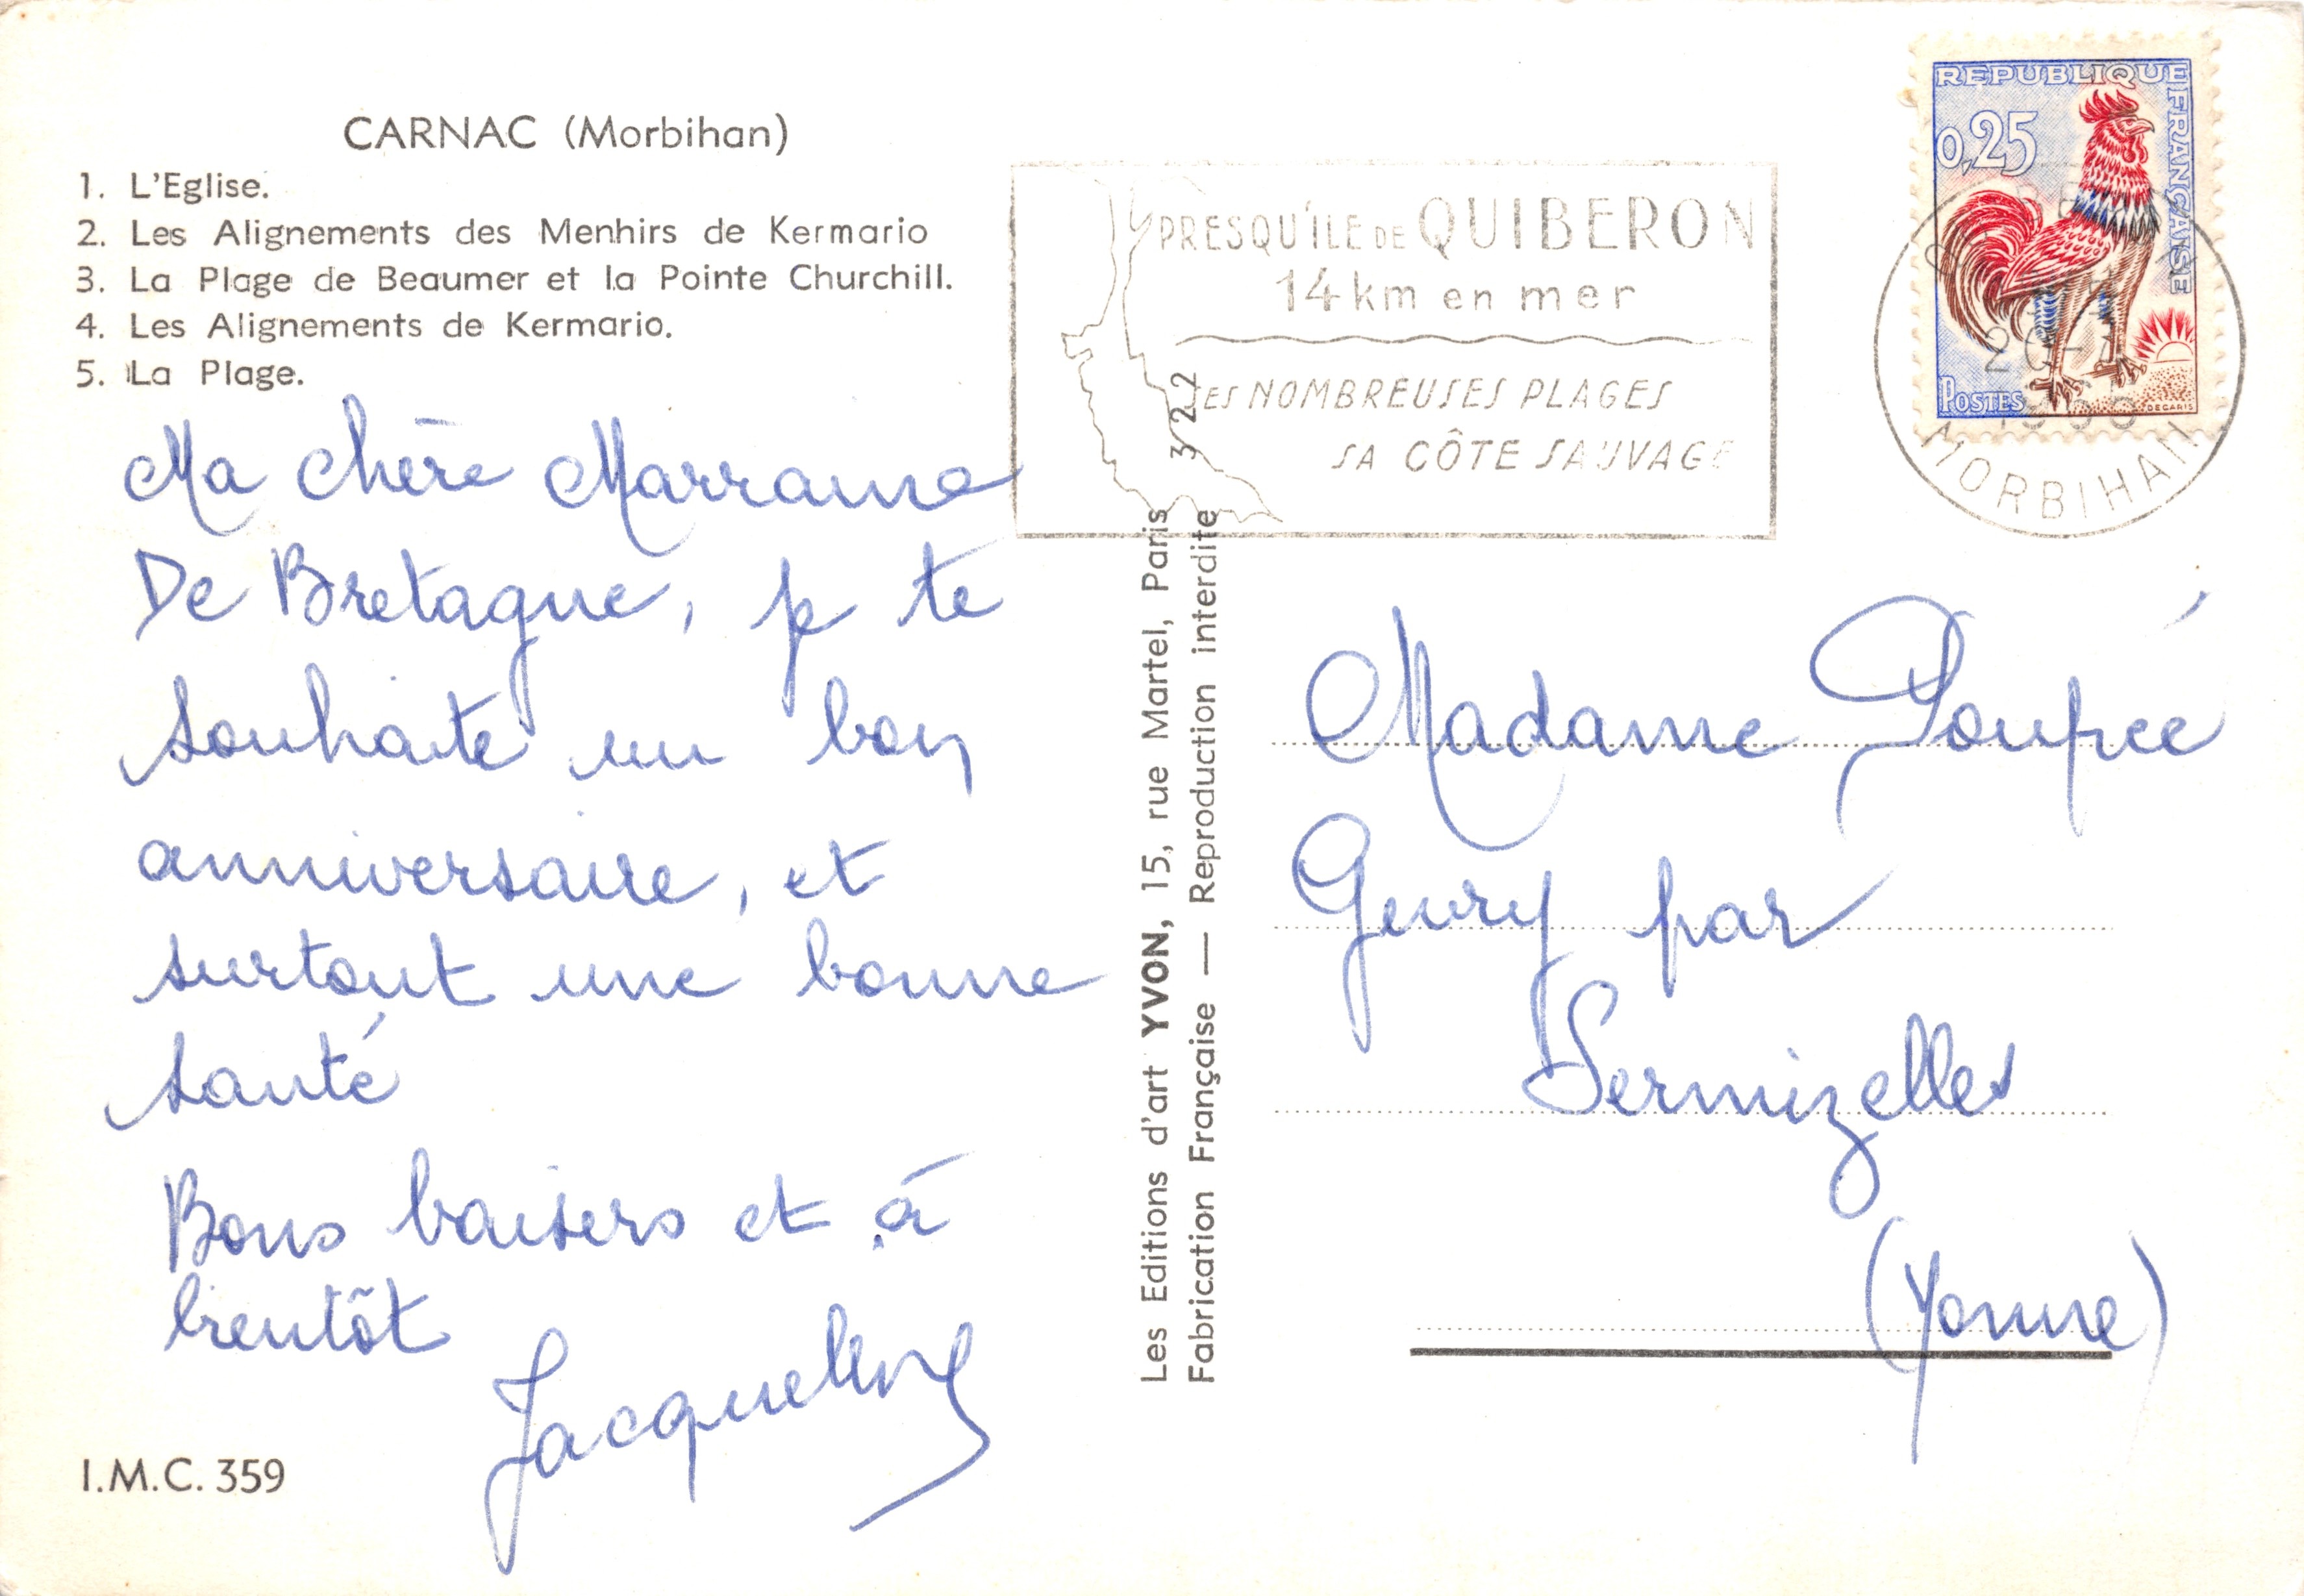 CARNAC (Morbihan)
1. L'Eglise.
2. Les Alignements des Menhirs de Kermario
3. La Plage de Beaumer et la Pointe Churchill.
4. Les Alignements de Kermario.
5. La Plage.
Ma chère Marraine
De Bretagne, je te
souhaite un bon
anniversaire, et
surtout une bonne
santé
Bons baisers et à
bientôt
Jacqueline
I.M.C. 359
Les Editions d'art YVON, 15, rue Martel, Paris 3/22
Fabrication Française — Reproduction interdite
PRESQU'ÎLE DE QUIBERON
14 km en mer
SES NOMBREUSES PLAGES
SA CÔTE SAUVAGE
REPUBLIQUE FRANÇAISE
0,25
POSTES
DECARIS
MORBIHAN
Madame Poupée
Givry par
Sermizelles
(Yonne)